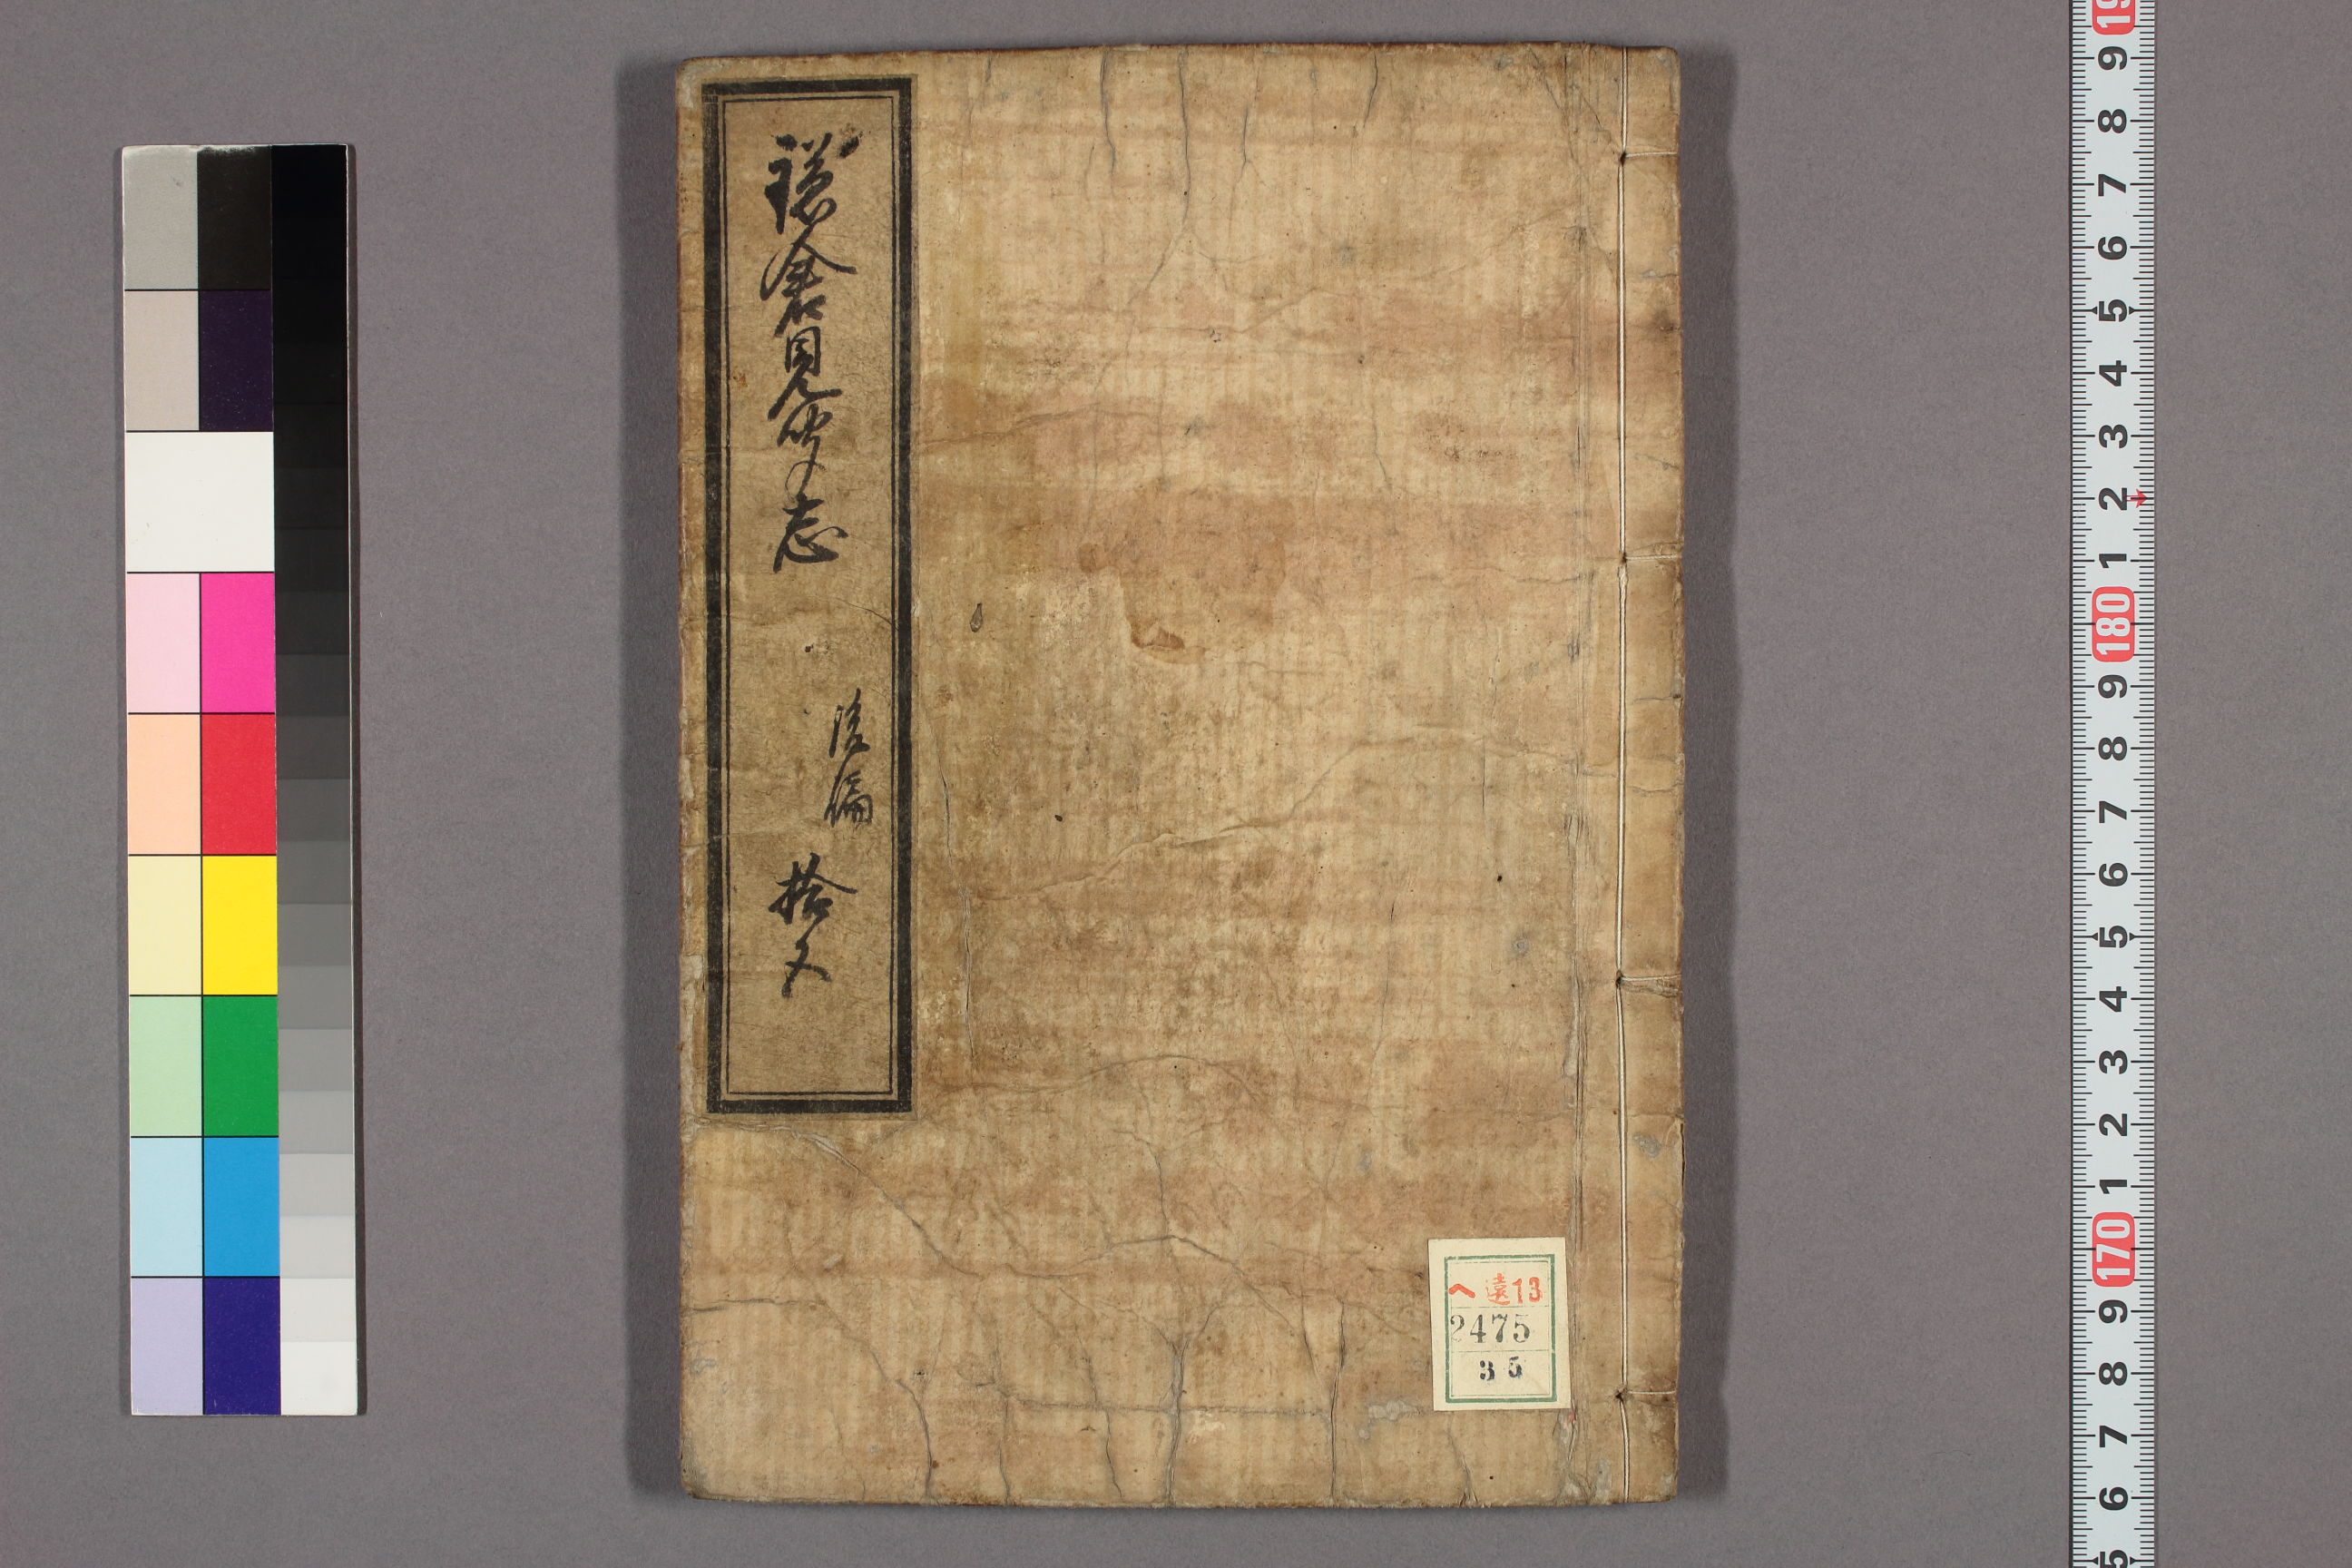 鎌倉見聞志
後編
拾五
へ遠13
2475
35
9
8
7
6
5
4
3
2
1
180
9
8
7
6
5
4
3
2
1
170
9
8
7
6
5